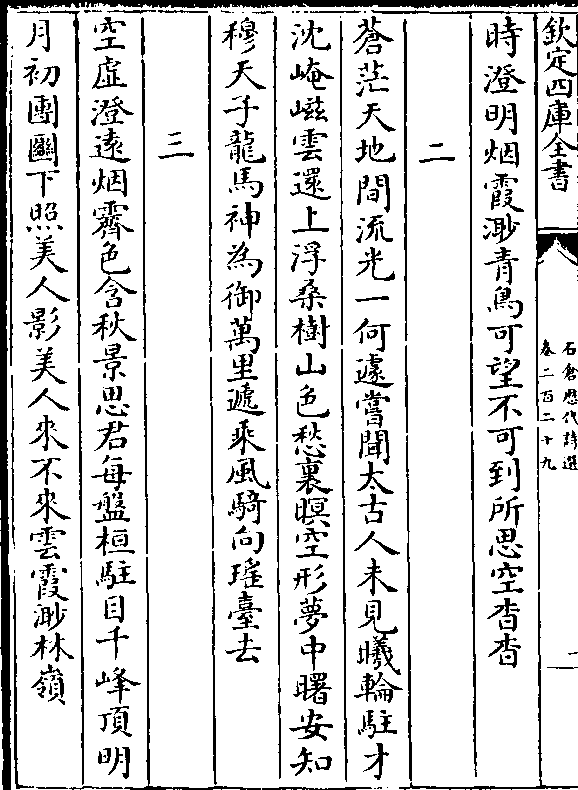 欽定四庫全書
石倉歷代詩選
卷二百二十九
二
時澄明烟霞渺青鳥可望不可到所思空杳杳
二
蒼茫天地間流光一何遽嘗聞太古人未見曦輪駐才
沈崦嵫雲還上浮桑樹山色愁裏暝空形夢中曙安知
穆天子龍馬神為御萬里遞乘風騎向瑤臺去
三
空虛澄遠烟霽色含秋景思君每盤桓駐目千峰頂明
月初團圝下照美人影美人來不來雲霞渺林嶺